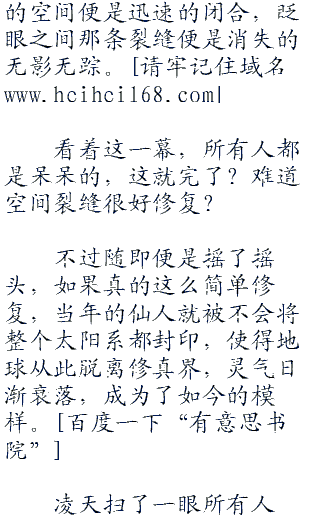 的空间便是迅速的闭合，眨
眼之间那条裂缝便是消失的
无影无踪。[请牢记住域名
www.hcihci168.com|
看着这一幕，所有人都
是呆呆的，这就完了？难道
空间裂缝很好修复？
不过随即便是摇了摇
头，如果真的这么简单修
复，当年的仙人就被不会将
整个太阳系都封印，使得地
球从此脱离修真界，灵气日
渐衰落，成为了如今的模
样。[百度一下“有意思书
院”]
凌天扫了一眼所有人